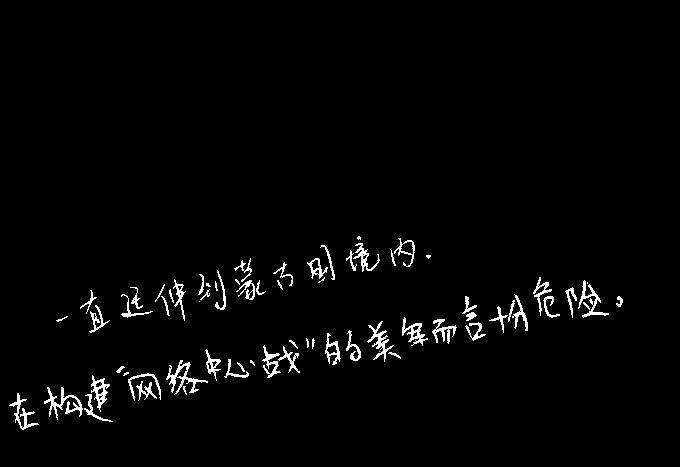 一直延伸到蒙古国境内.
在构建"网络中心战"的美军而言十份危险。